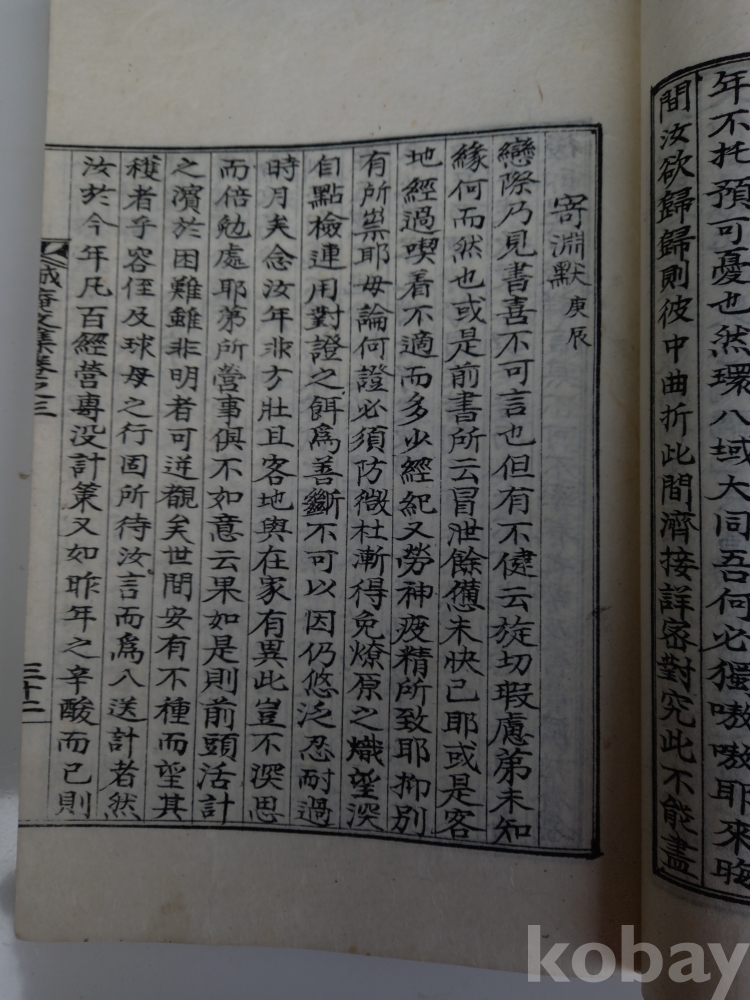 年不托預可憂也然環八域大同吾何必獨嗷嗷耶來晦
間汝欲歸歸則彼中曲折此間濟接詳密對究此不能盡
寄淵默 庚辰
戀際乃見書喜不可言也但有不健云旋切瑕慮第未知
緣何而然也或是前書所云冒泄餘憊未快已耶或是客
地經過喫着不適而多少經紀又勞神疲精所致耶抑別
有所祟耶毋論何證必須防微杜漸得免燎原之熾望深
自點檢連用對證之餌爲善斷不可以因仍悠泛忍耐過
時月矣念汝年非方壯且客地與在家有異此豈不深思
而倍勉處耶第所營事俱不如意云果如是則前頭活計
之濱於困難雖非明者可逆覩矣世間安有不種而望其
穫者乎容侄及球母之行固所待汝言而爲入送計者然
汝於今年凡百經營專沒計策又如昨年之辛酸而已則
誠菴文集卷之三
三十二
kobay